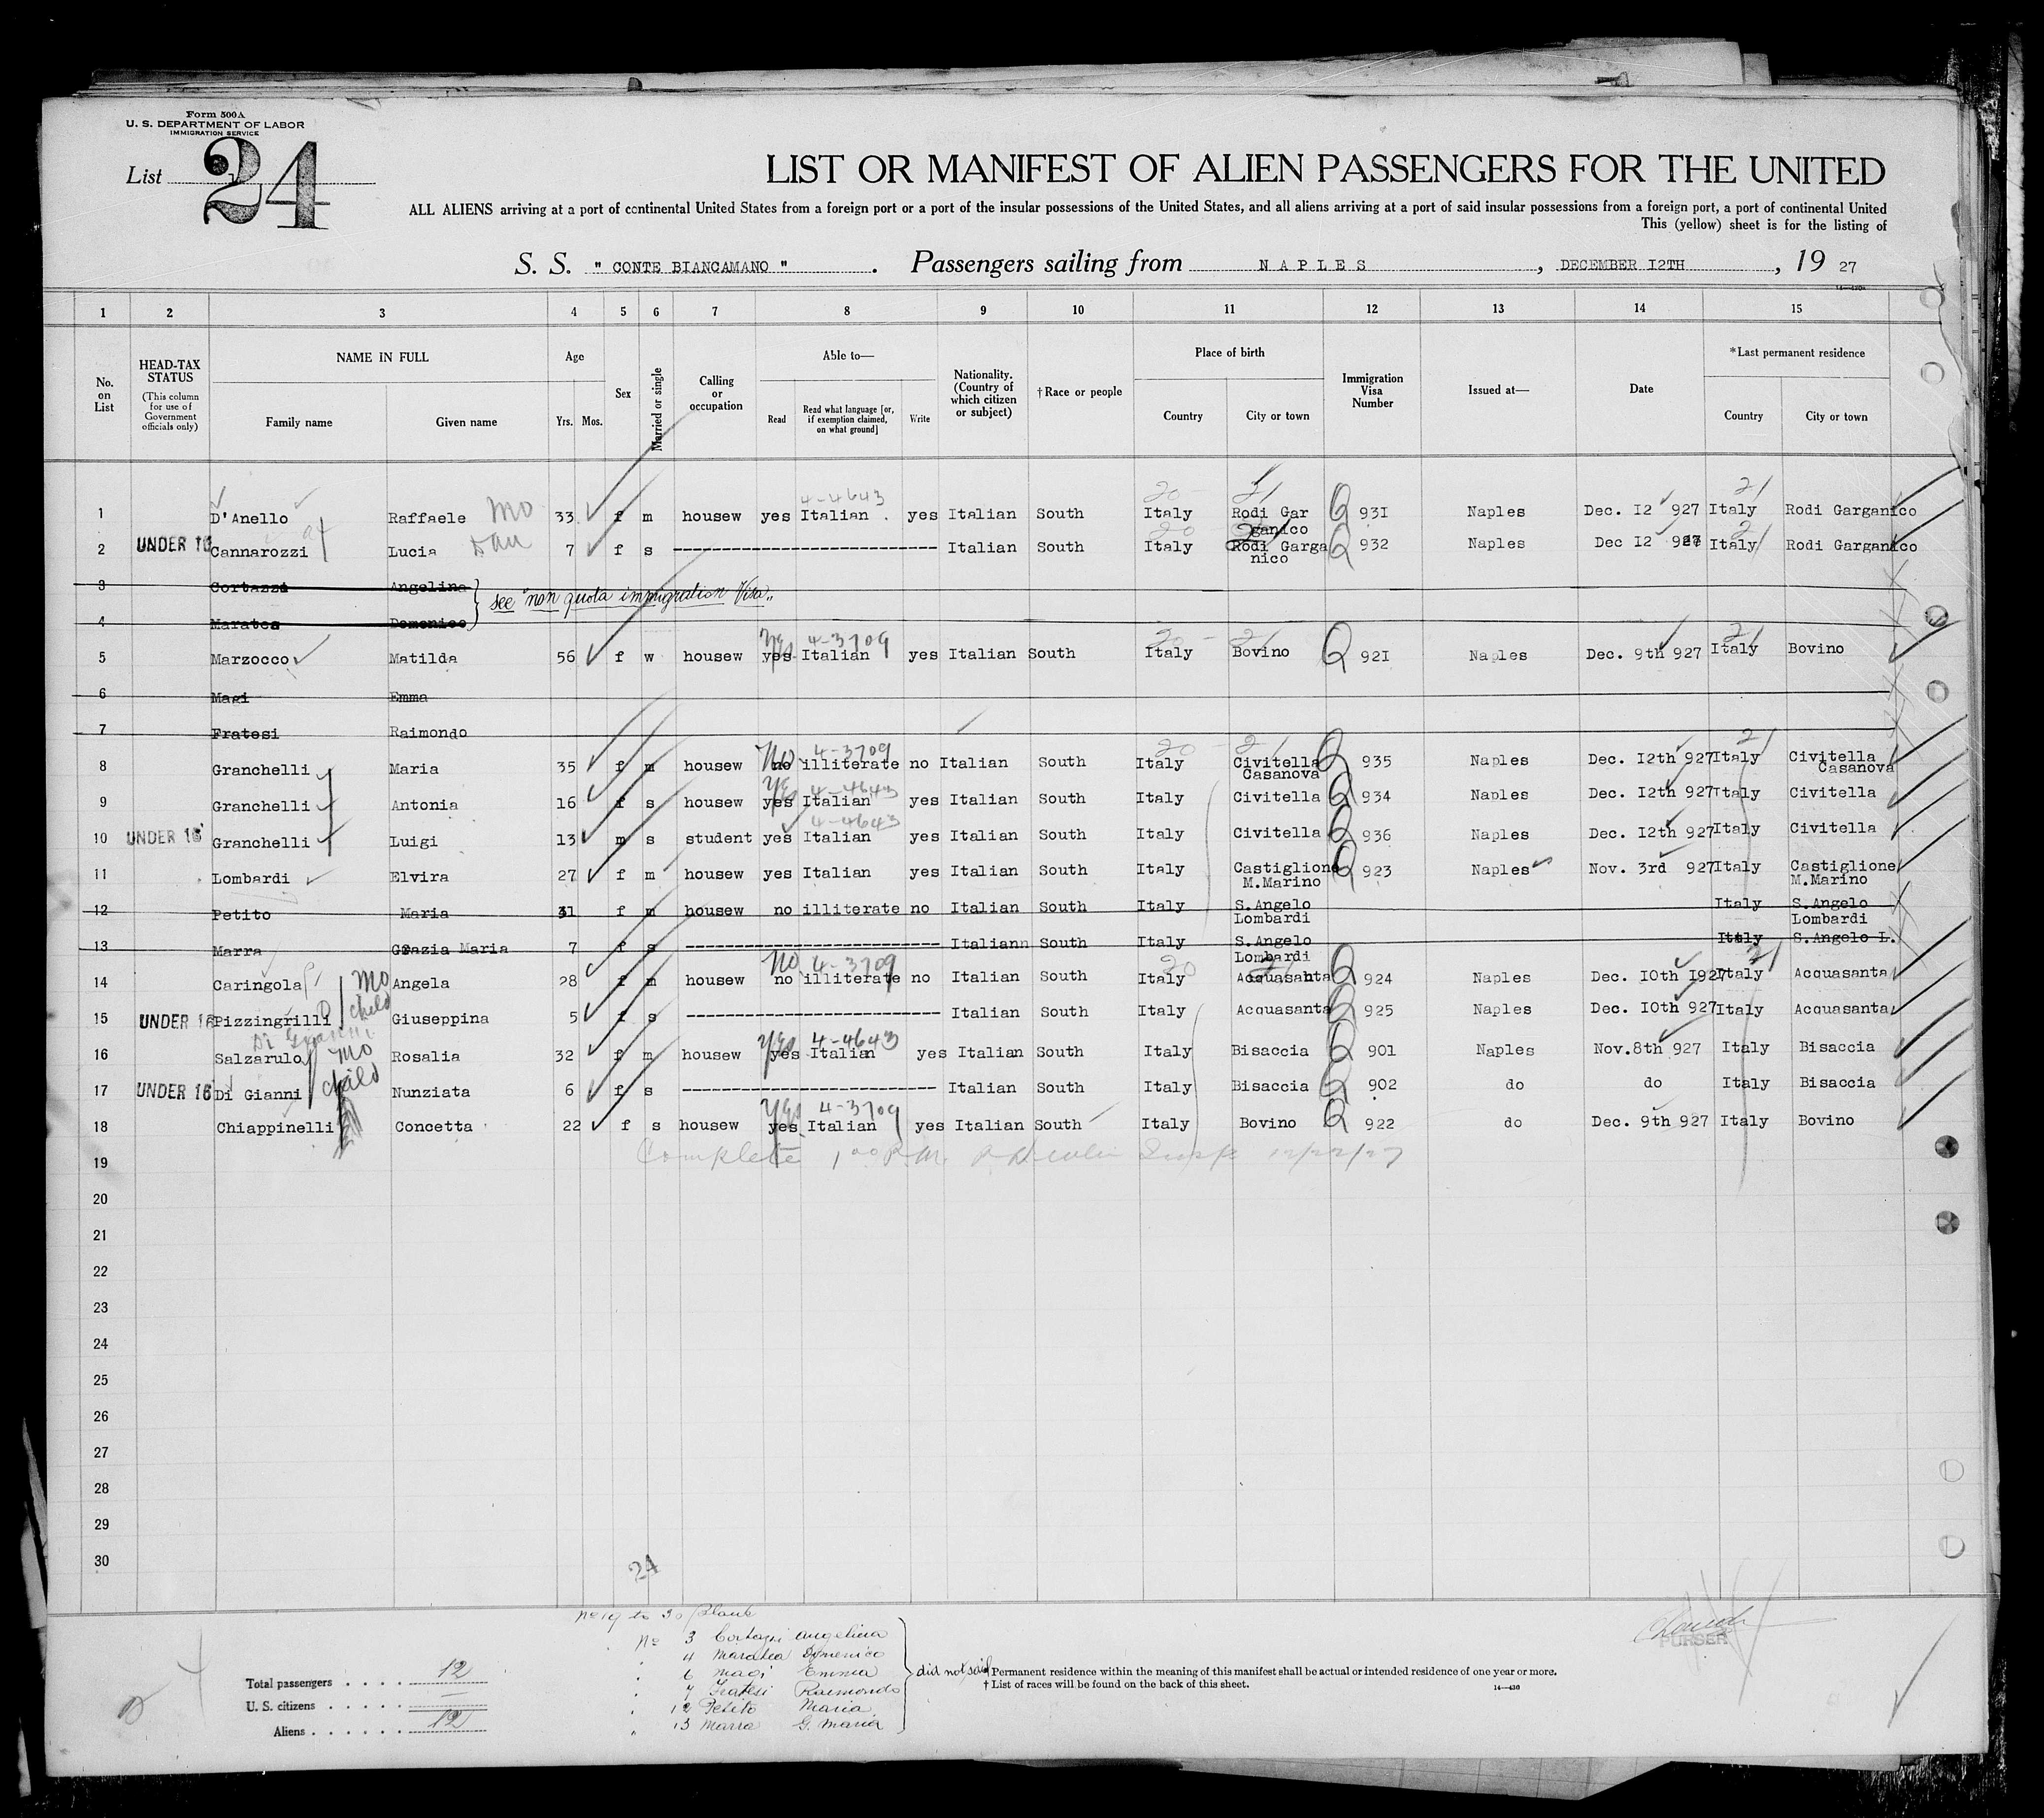 Form 500A
U. S. DEPARTMENT OF LABOR
IMMIGRATION SERVICE
List 24
LIST OR MANIFEST OF ALIEN PASSENGERS FOR THE UNITED
ALL ALIENS arriving at a port of continental United States from a foreign port or a port of the insular possessions of the United States, and all aliens arriving at a port of said insular possessions from a foreign port, a port of continental United
This (yellow) sheet is for the listing of
S. S. " CONTE BIANCAMANO " . Passengers sailing from NAPLES , DECEMBER I2TH , 19 27
1 2 3 4 5 6 7 8 9 10 11 12 13 14 15
No. on List HEAD-TAX STATUS (This column for use of Government officials only) NAME IN FULL Family name Given name Age Yrs. Mos. Sex Married or single Calling or occupation Able to— Read Read what language [or, if exemption claimed, on what ground] Write Nationality. (Country of which citizen or subject) †Race or people Place of birth Country City or town Immigration Visa Number Issued at— Date *Last permanent residence Country City or town
4-4643 20 21 21
1 D'Anello Raffaele Mo 33 f m housew yes Italian yes Italian South Italy Rodi Gar ganico Q 93I Naples Dec. I2 927 Italy Rodi Garganico
2 UNDER 16 Cannarozzi Lucia Dau 7 f s Italian South Italy Rodi Garga nico Q 932 Naples Dec I2 927 Italy Rodi Garganico
3 Cortazzi Angelina
see "non quota immigration Visa"
4 Maratea Domenico
Yes 4-3709 20 - 21 21
5 Marzocco Matilda 56 f w housew yes Italian yes Italian South Italy Bovino Q 92I Naples Dec. 9th 927 Italy Bovino
6 Magi Emma
7 Fratesi Raimondo
No 4-3709 20 - 21 21
8 Granchelli Maria 35 f m housew no illiterate no Italian South Italy Civitella Casanova Q 935 Naples Dec. I2th 927 Italy Civitella Casanova
Yes 4-4643
9 Granchelli Antonia 16 f s housew yes Italian yes Italian South Italy Civitella Q 934 Naples Dec. I2th 927 Italy Civitella
4-4643
10 UNDER 16 Granchelli Luigi 13 m s student yes Italian yes Italian South Italy Civitella Q 936 Naples Dec. I2th 927 Italy Civitella
11 Lombardi Elvira 27 f m housew yes Italian yes Italian South Italy Castiglione M.Marino Q 923 Naples Nov. 3rd 927 Italy Castiglione M.Marino
12 Petito Maria 31 f m housew no illiterate no Italian South Italy S.Angelo Lombardi Italy S.Angelo Lombardi
13 Marra Grazia Maria 7 f s Italiann South Italy S.Angelo Lombardi Italy S.Angelo L.
No 4-3709 20 21 21
14 Caringola Mo Angela 28 f m housew no illiterate no Italian South Italy Acquasanta Q 924 Naples Dec. I0th I927 Italy Acquasanta
15 UNDER 16 Pizzingrilli child Giuseppina 5 f s Italian South Italy Acquasanta Q 925 Naples Dec. I0th 927 Italy Acquasanta
Di Gianni Yes 4-4643
16 Salzarulo Mo Rosalia 32 f m housew yes Italian yes Italian South Italy Bisaccia Q 901 Naples Nov.8th 927 Italy Bisaccia
17 UNDER 16 Di Gianni child Nunziata 6 f s Italian South Italy Bisaccia Q 902 do do Italy Bisaccia
Yes 4-3709
18 Chiappinelli Concetta 22 f s housew yes Italian yes Italian South Italy Bovino Q 922 do Dec. 9th 927 Italy Bovino
19 Complete 1 00 P.M. Insp 12/22/27
20
21
22
23
24
25
26
27
28
29
30
24
No 19 to 30 Blank
No 3 Cortazzi Angelina
4 Maratea Domenico
6 Magi Emma
7 Fratesi Raimondo
12 Petito Maria
13 Marra G. Maria
did not sail
PURSER
Total passengers 12
U. S. citizens —
Aliens 12
* Permanent residence within the meaning of this manifest shall be actual or intended residence of one year or more.
† List of races will be found on the back of this sheet.
14—430